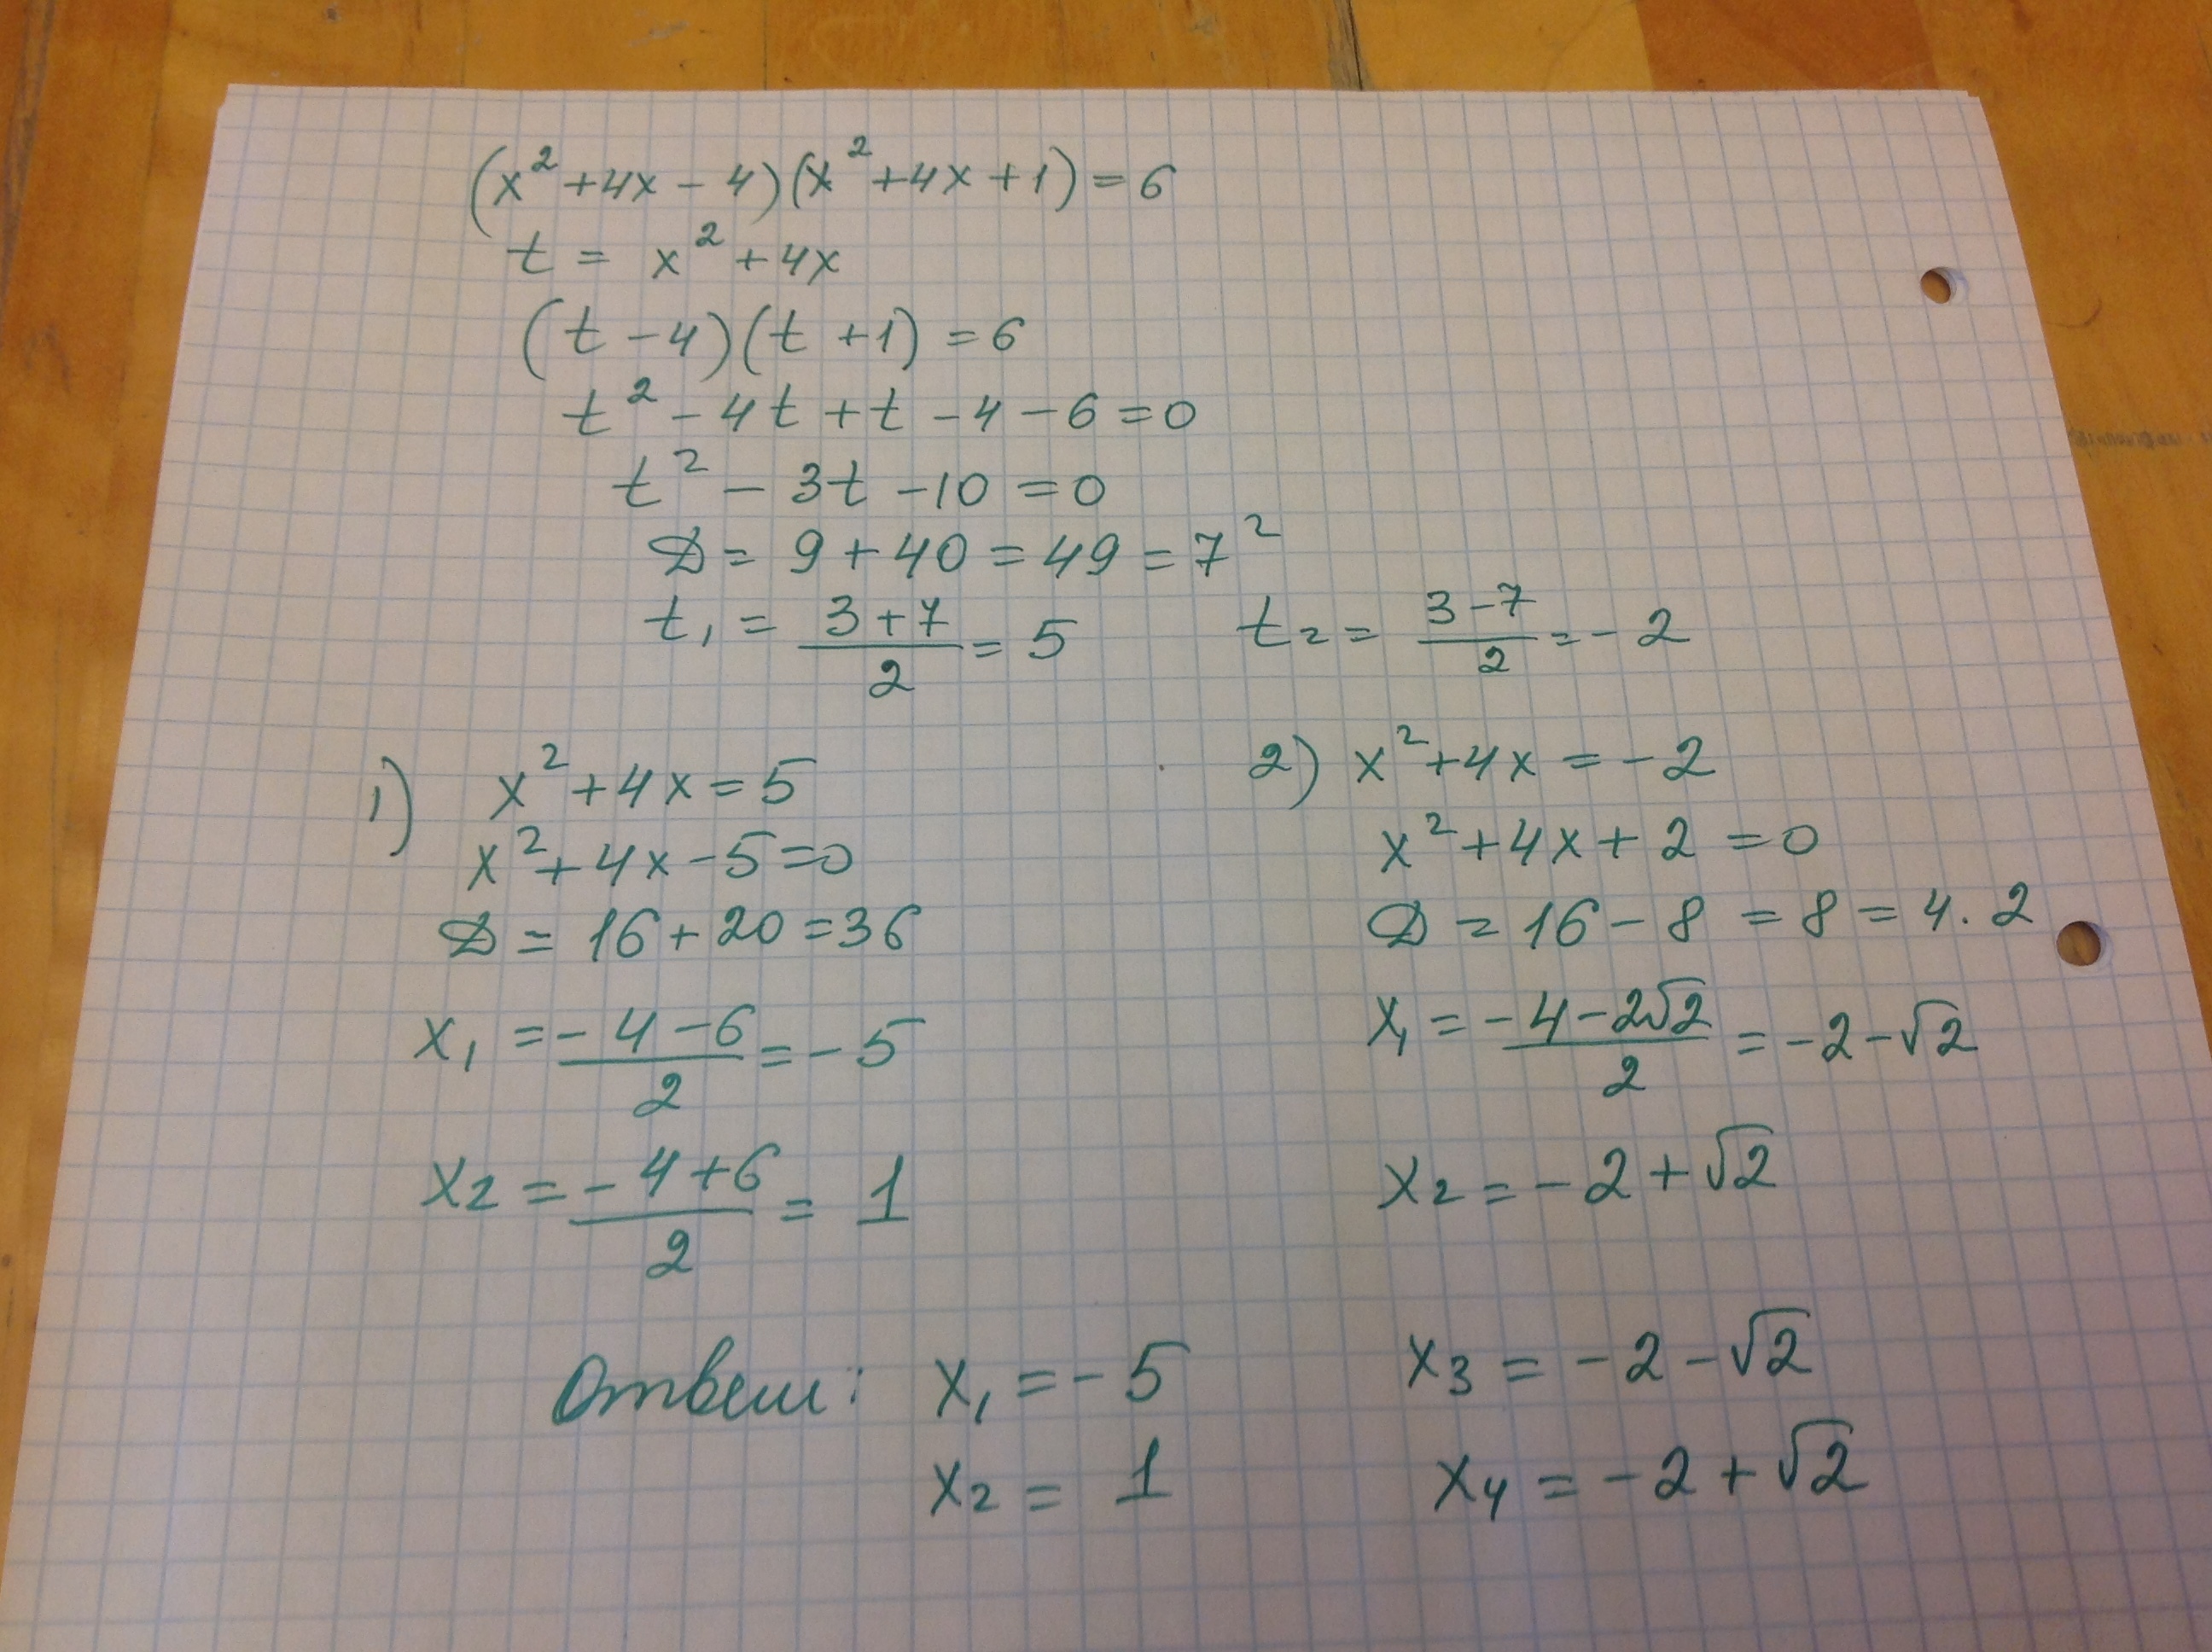 (x² + 4x - 4)(x² + 4x + 1) = 6
t = x² + 4x
(t - 4)(t + 1) = 6
t² - 4t + t - 4 - 6 = 0
t² - 3t - 10 = 0
D = 9 + 40 = 49 = 7²
t₁ = (3 + 7)/2 = 5    t₂ = (3 - 7)/2 = -2
1) x² + 4x = 5
x² + 4x - 5 = 0
D = 16 + 20 = 36
x₁ = (-4 - 6)/2 = -5
x₂ = (-4 + 6)/2 = 1
2) x² + 4x = -2
x² + 4x + 2 = 0
D = 16 - 8 = 8 = 4 · 2
x₁ = (-4 - 2√2)/2 = -2 - √2
x₂ = -2 + √2
Ответ: x₁ = -5    x₃ = -2 - √2
x₂ = 1    x₄ = -2 + √2